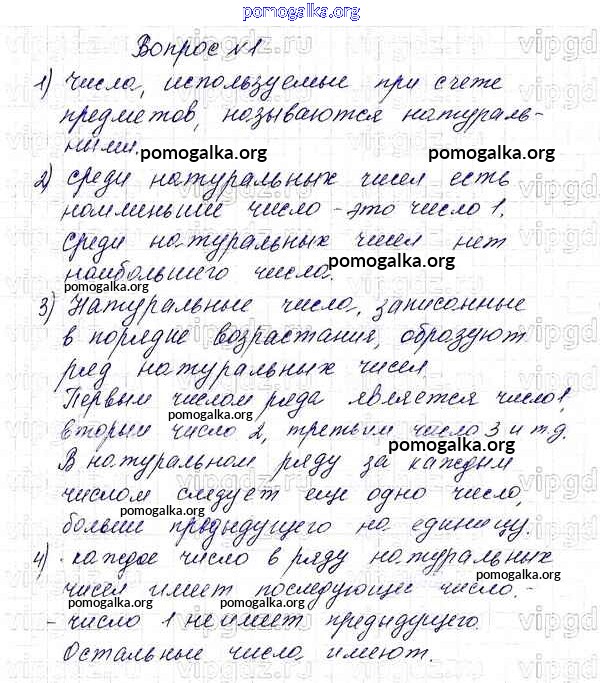 pomogalka.org
Вопрос №1
1) числа, используемые при счете
предметов, называются натураль-
ными.
pomogalka.org pomogalka.org
2) среди натуральных чисел есть
наименьшее число - это число 1.
Среди натуральных чисел нет
наибольшего числа.
pomogalka.org
3) Натуральные числа, записанные
в порядке возрастания, образуют
ряд натуральных чисел.
Первым числом ряда является число 1,
pomogalka.org
вторым число 2, третьим число 3 и т.д.
pomogalka.org
В натуральном ряду за каждым
числом следует еще одно число,
больше предыдущего на единицу.
pomogalka.org pomogalka.org
4) · каждое число в ряду натуральных
чисел имеет последующее число.-
pomogalka.org pomogalka.org
- число 1 не имеет предыдущего.
Остальные числа имеют.